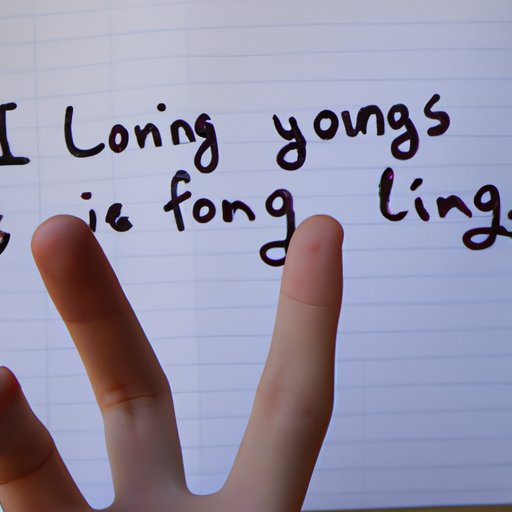 I Loning youngs
ie fong ling.